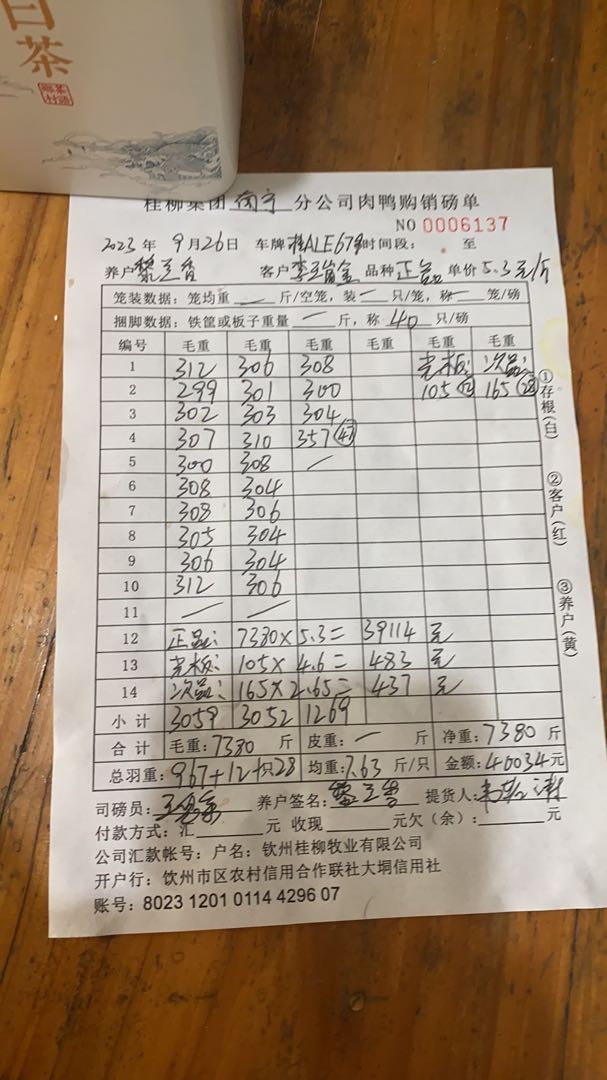 白茶
桂柳集团 南宁 分公司肉鸭购销磅单
NO 0006137
2023 年 9 月 26 日 车牌 桂ALE679 时间段: 至
养户 客户 品种 正品 单价 5.3元/斤
笼装数据: 笼均重 — 斤/空笼, 装 — 只/笼, 称 — 笼/磅
捆脚数据: 铁筐或板子重量 — 斤, 称 40 只/磅
编号 毛重 毛重 毛重 毛重 毛重 毛重
1 312 306 308 老板: 次品:
2 299 301 300 105 (12) 165 (28)
3 302 303 304
4 307 310 357 (47)
5 300 308 —
6 308 304
7 308 306
8 305 304
9 306 304
10 312 306
11 — —
12 正品: 7380 × 5.3 = 39114 元
13 老板: 105 × 4.6 = 483 元
14 次品: 165 × 2.65 = 437 元
小计 3059 3052 1269
合计 毛重: 7380 斤 皮重: — 斤 净重: 7380 斤
总羽重: 967+12+28 均重: 7.63 斤/只 金额: 40034 元
司磅员: 养户签名: 提货人:
付款方式: 汇 元 收现 元欠(余): 元
公司汇款帐号: 户名: 钦州桂柳牧业有限公司
开户行: 钦州市区农村信用合作联社大垌信用社
账号: 8023 1201 0114 4296 07
①存根(白)
②客户(红)
③养户(黄)